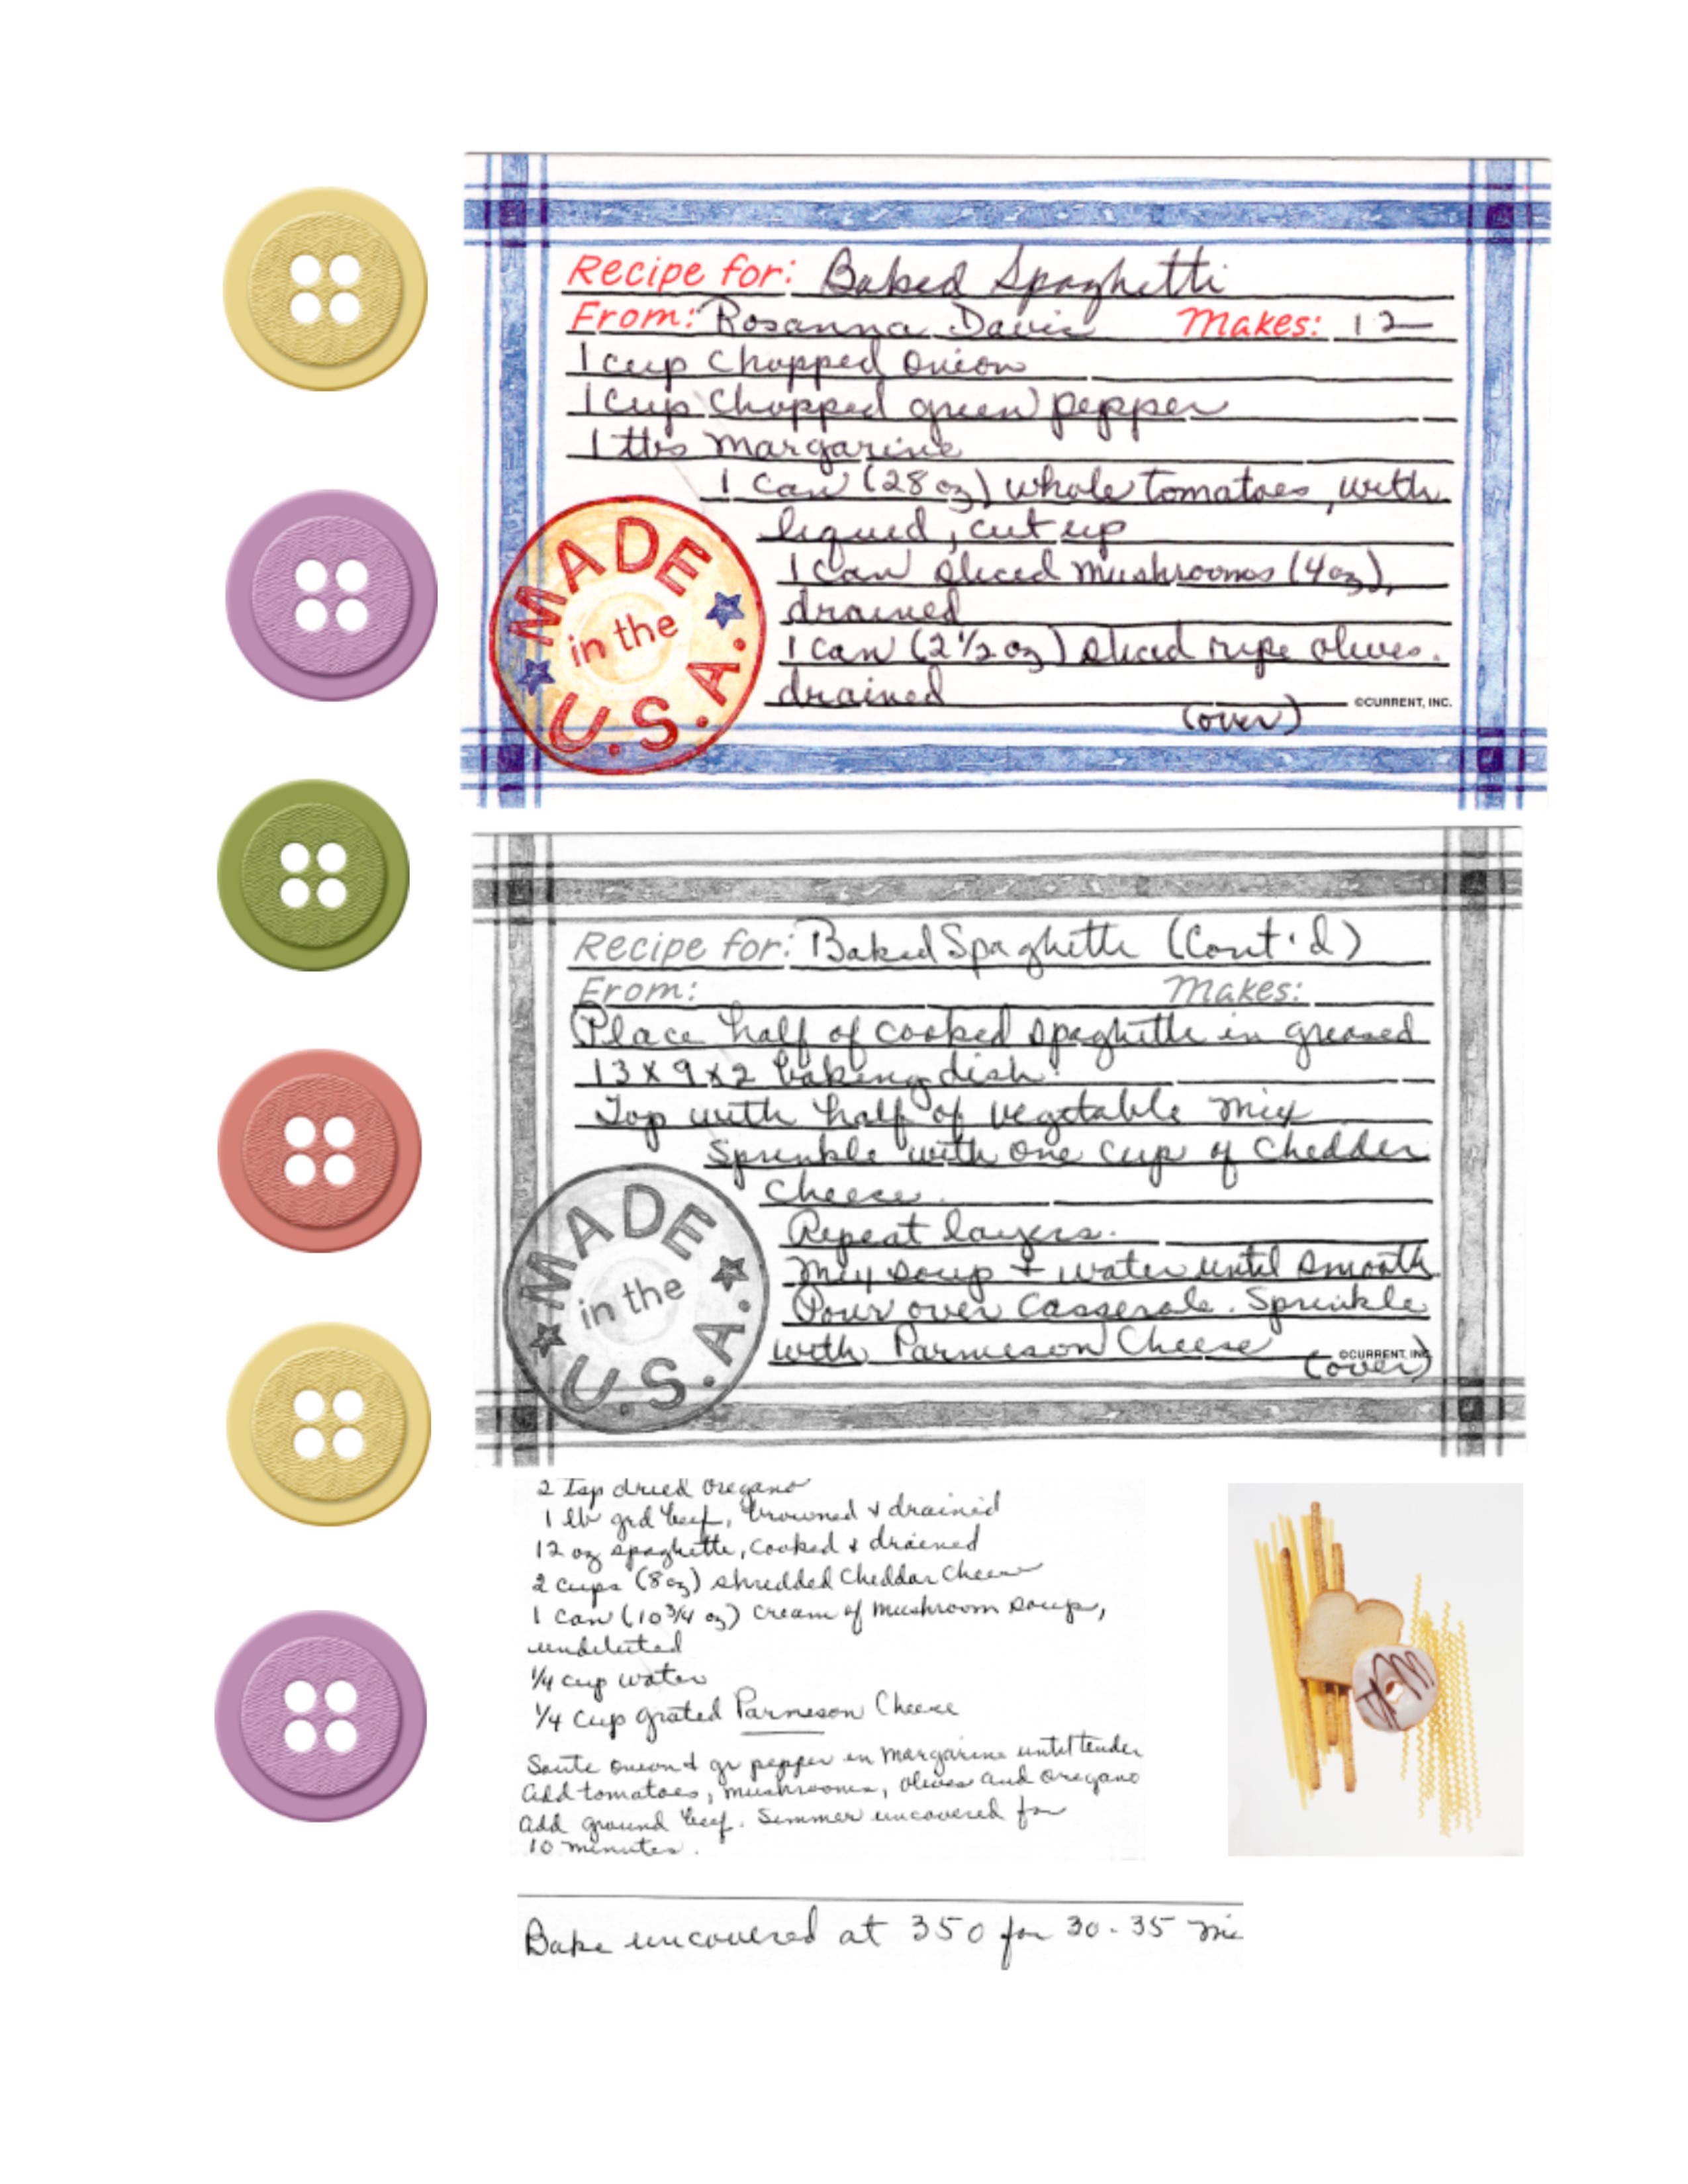 Recipe for: Baked Spaghetti
From: Rosanna Davis Makes: 12
1 cup chopped onion
1 cup chopped green pepper
1 tbs margarine
1 can (28 oz) whole tomatoes, with
liquid, cut up
1 can sliced mushrooms (4 oz),
drained
1 can (2 1/2 oz) sliced ripe olives.
drained
©CURRENT, INC.
(over)
MADE
in the
U.S.A.
Recipe for: Baked Spaghetti (Cont'd)
From: Makes:
Place half of cooked spaghetti in greased
13 x 9 x 2 baking dish.
Top with half of vegetable mix
Sprinkle with one cup of Chedder
Cheese.
Repeat layers.
Mix soup + water until smooth
Pour over Casserole. Sprinkle
with Parmeson Cheese
©CURRENT, INC.
(over)
MADE
in the
U.S.A.
2 tsp dried oregano
1 lb grd beef, browned & drained
12 oz spaghetti, cooked & drained
2 cups (8 oz) shredded Cheddar Cheese
1 can (10 3/4 oz) cream of mushroom soup,
undiluted
1/4 cup water
1/4 cup grated Parmeson Cheese
Saute onion & gr pepper in margarine until tender
Add tomatoes, mushrooms, olives and oregano
add ground beef. Simmer uncovered for
10 minutes.
Bake uncovered at 350 for 30-35 mi